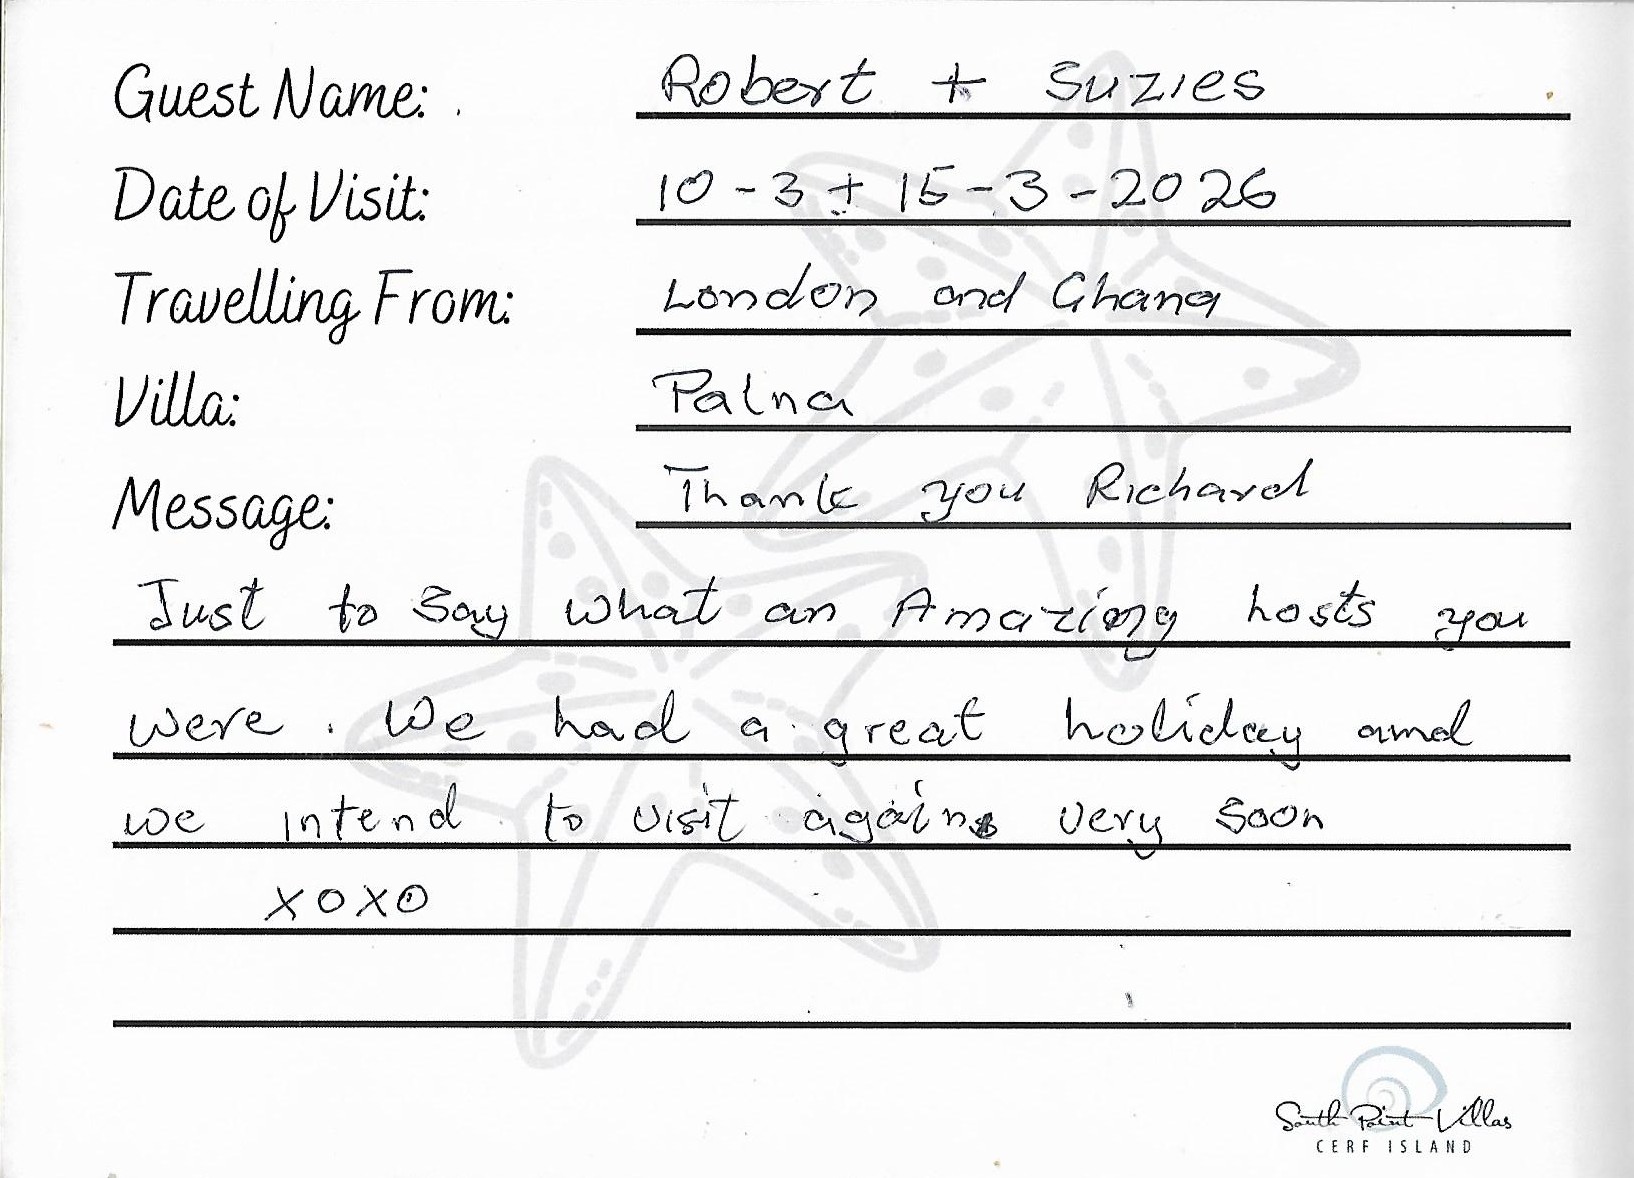 Guest Name: Robert + Suzies
Date of Visit: 10-3 + 15-3-2026
Travelling From: London and Ghana
Villa: Palna
Message: Thank you Richard
Just to say what an Amazing hosts you
were. We had a great holiday and
we intend to visit again very soon
xoxo
South Point Villas
CERF ISLAND